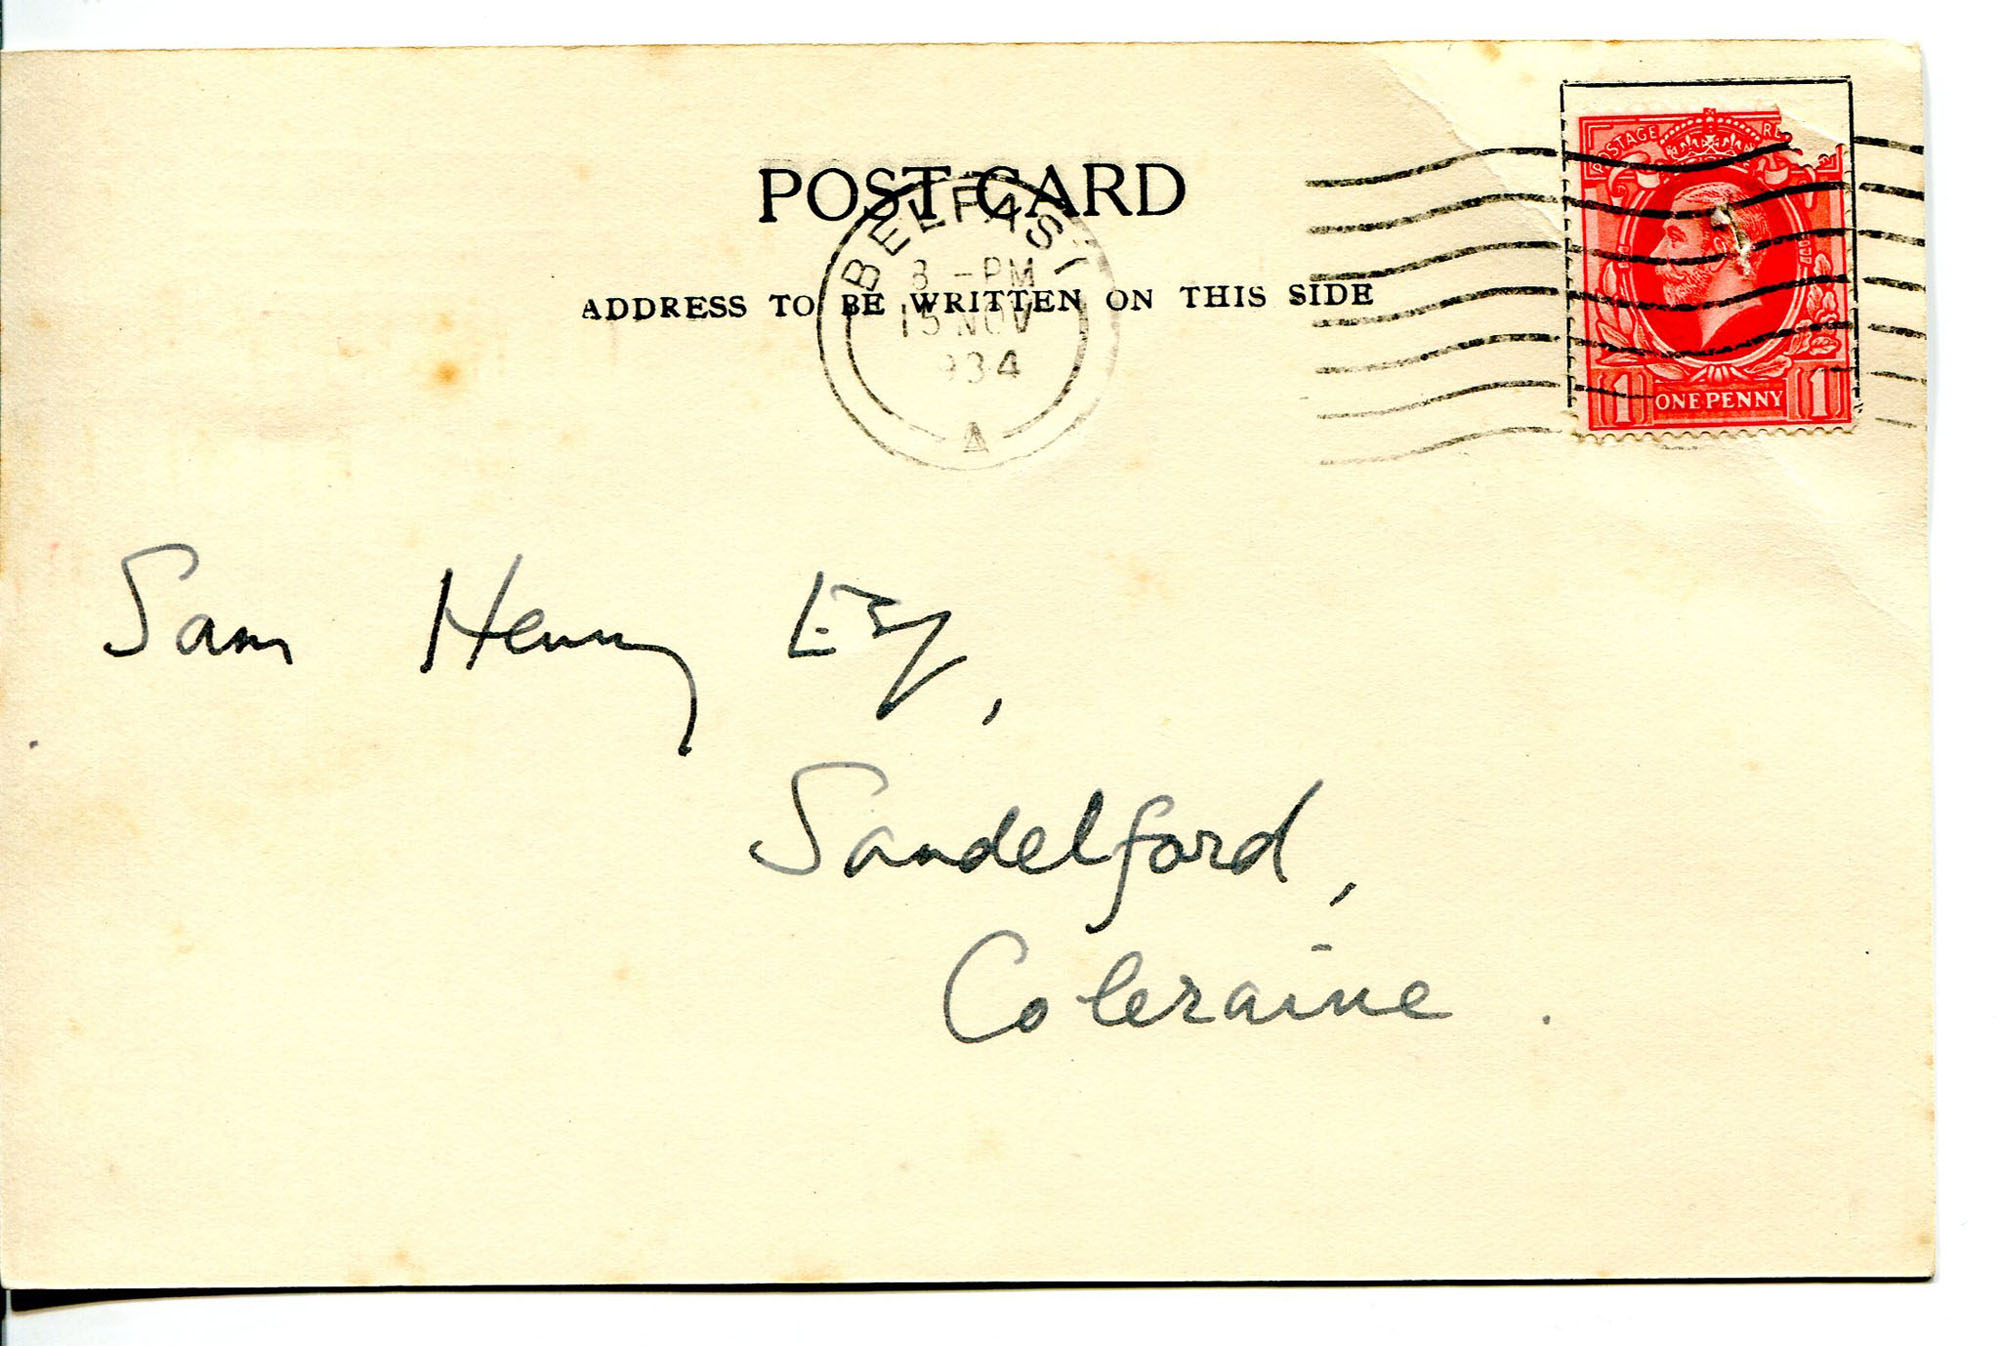 POST CARD
ADDRESS TO BE WRITTEN ON THIS SIDE
BELFAST
8 - PM
15 NOV
1934
A
POSTAGE
ONE PENNY
1 1
Sam Henry Esq,
Sandelford,
Coleraine.